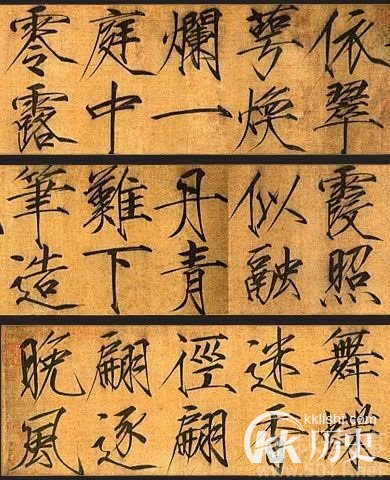 依翠
萼煥
爛一
庭中
零露
霞照
似融
丹青
難下
筆造
舞蝶
迷香
徑翩
翩逐
晚風
kklishi.com
KK历史